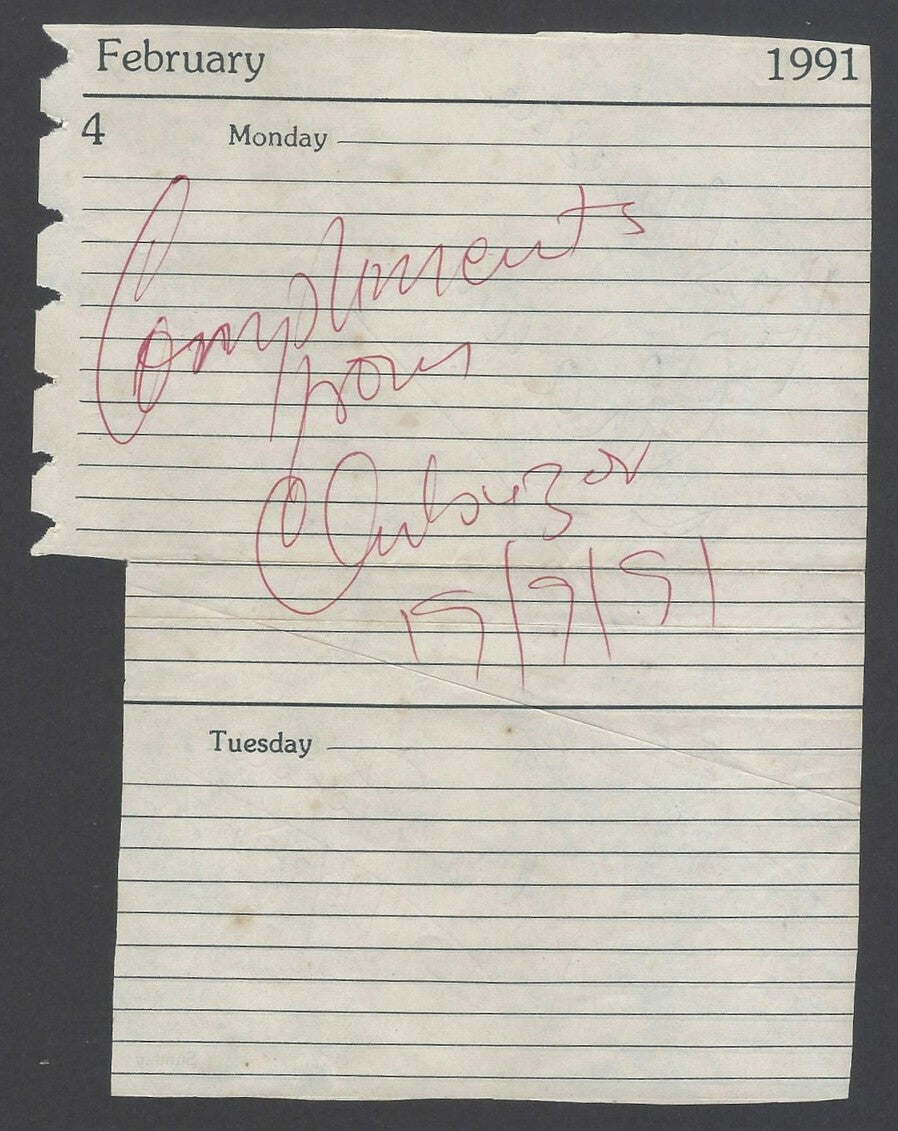 February 1991
4 Monday
Compliments
from
19/9/91
Tuesday